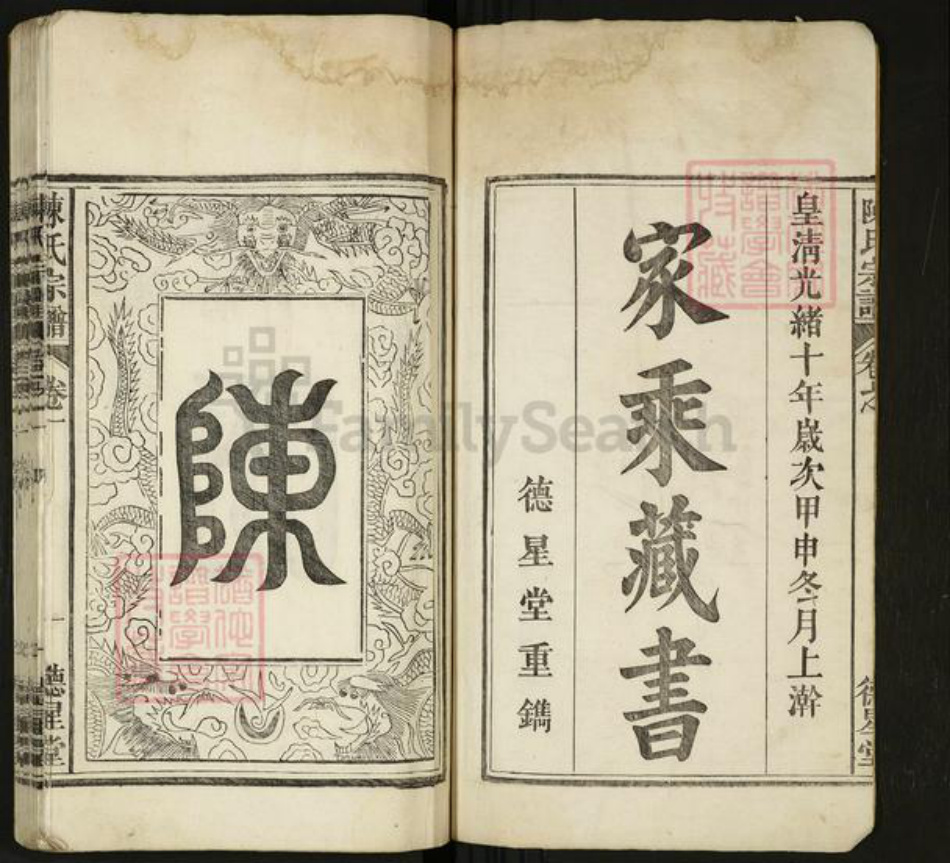 皇清光緒十年歲次甲申冬月上澣
家乘藏書
德星堂重鐫
陳氏宗譜
德星堂
陳
陳氏宗譜
卷一
一
德星堂
FamilySearch